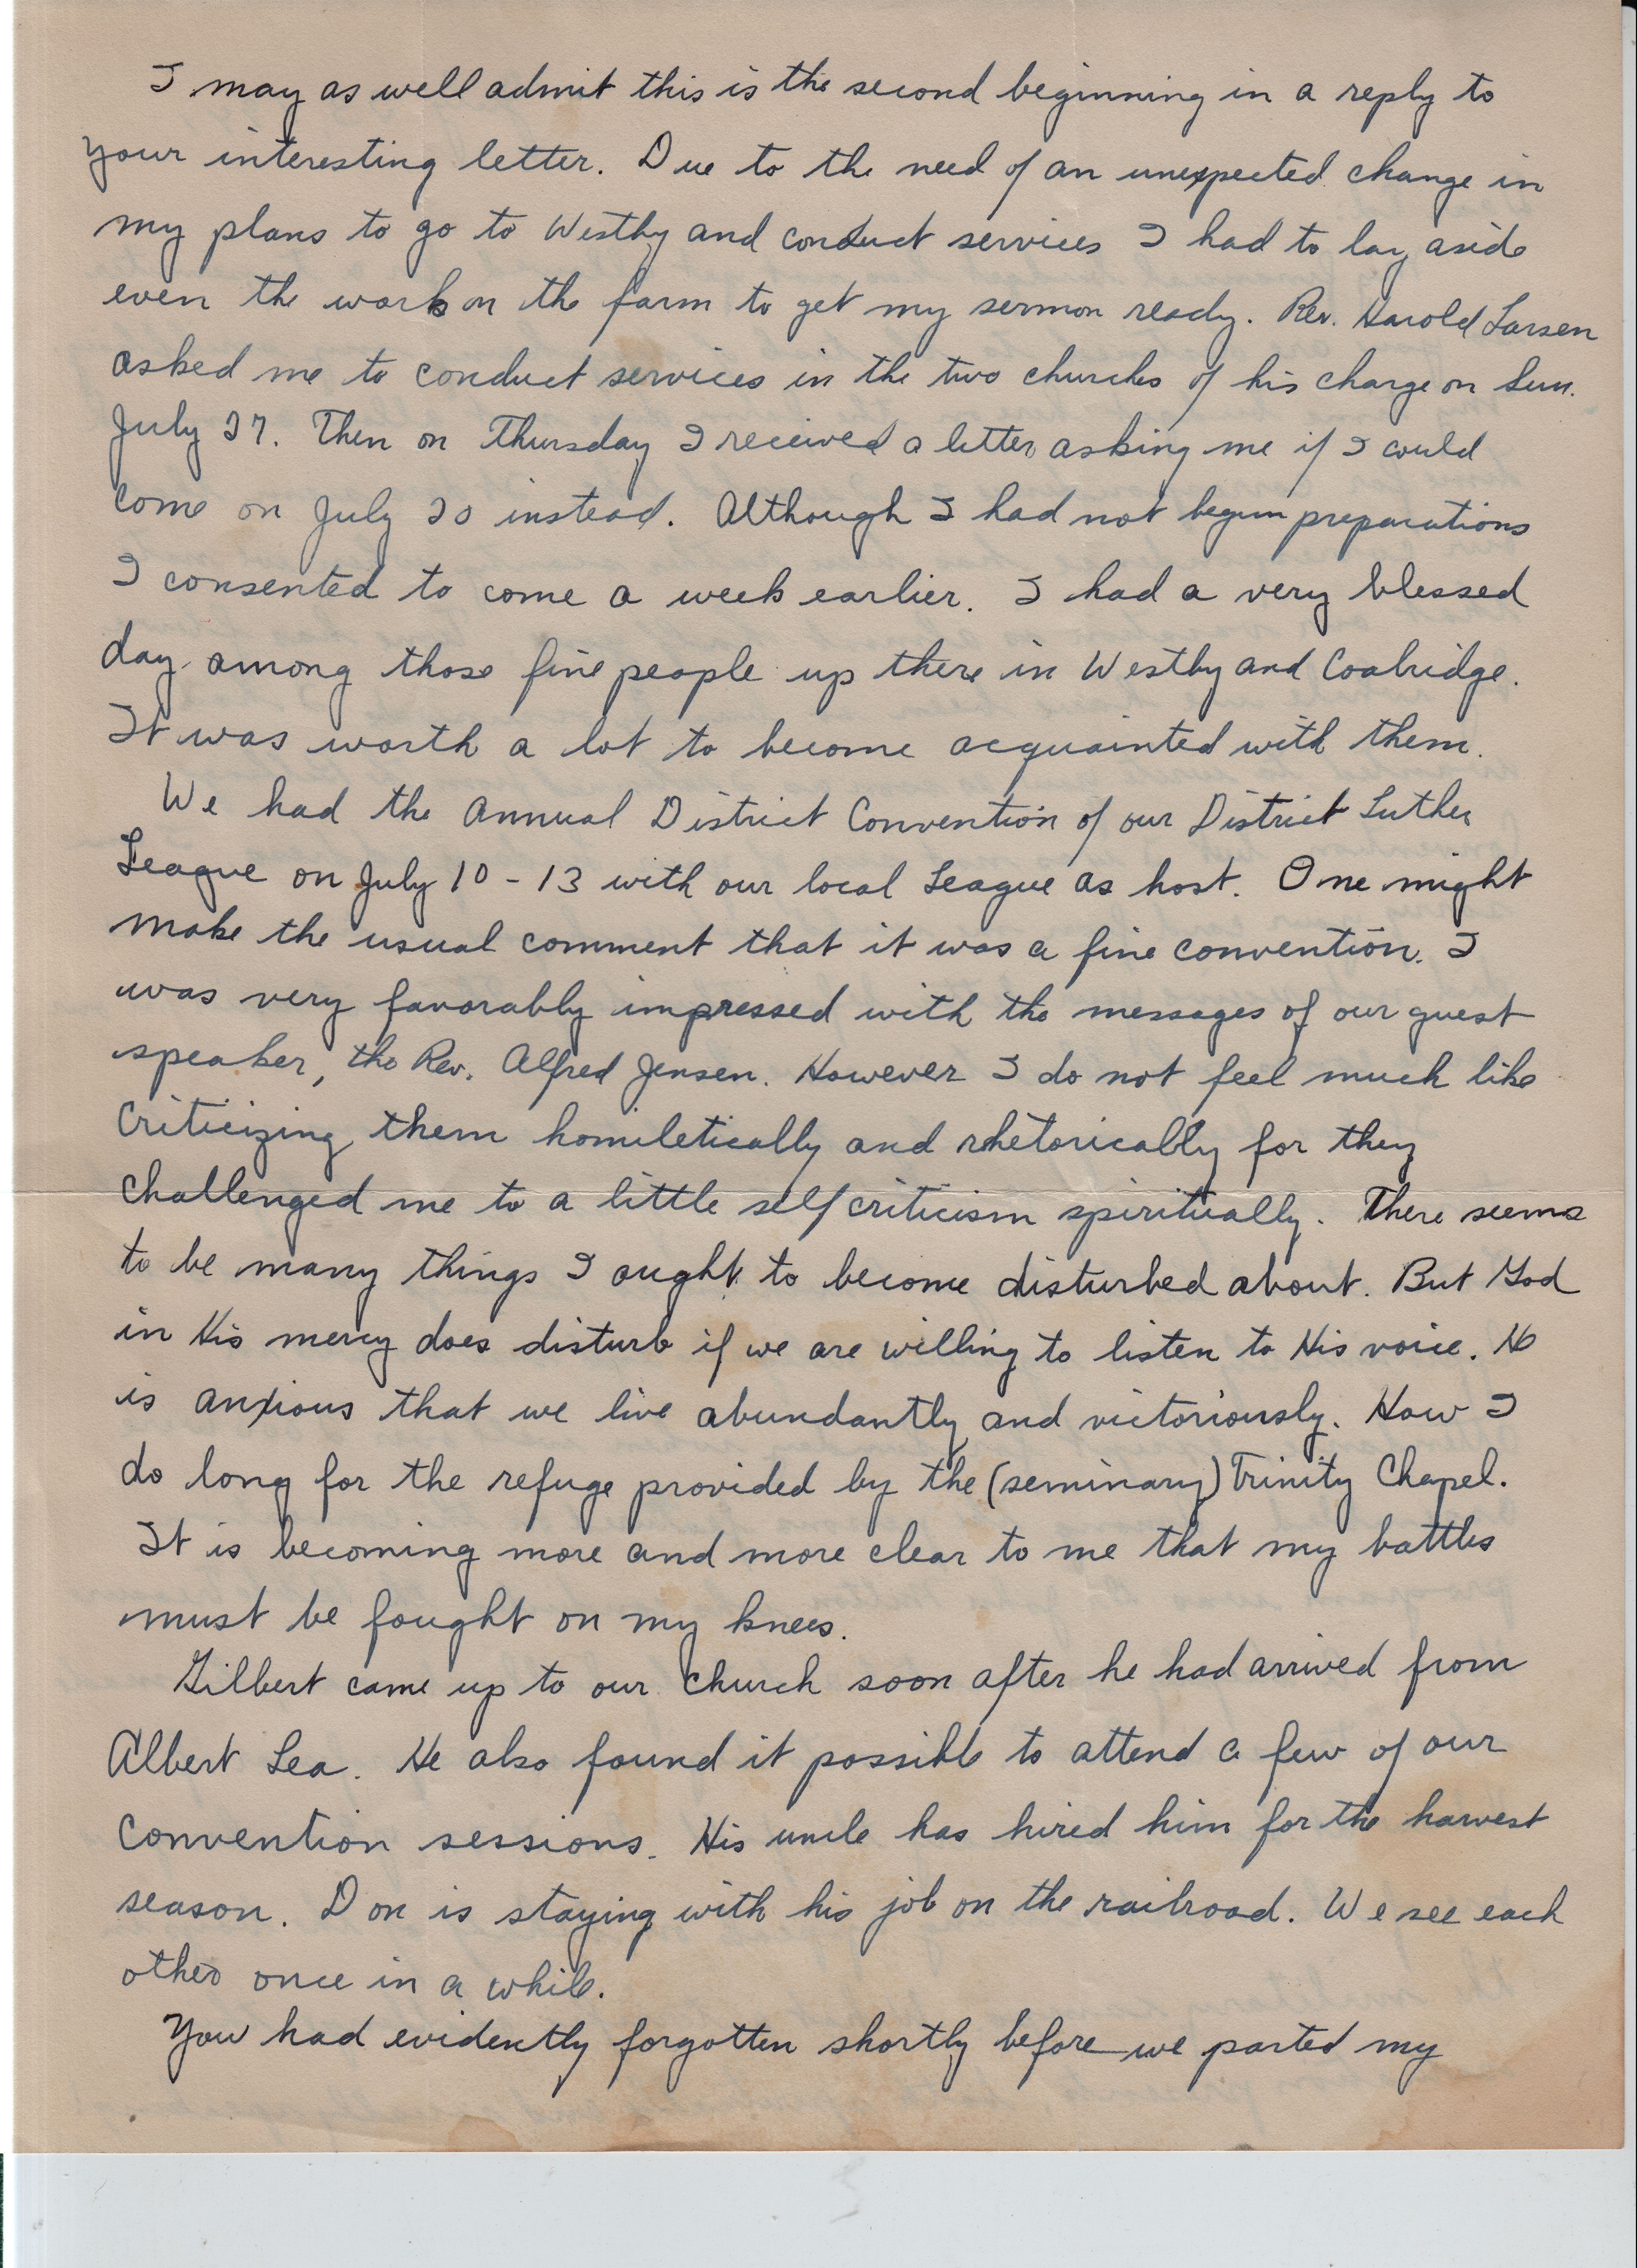 I may as well admit this is the second beginning in a reply to
your interesting letter. Due to the need of an unexpected change in
my plans to go to Westby and conduct services I had to lay aside
even the work on the farm to get my sermon ready. Rev. Harold Larsen
asked me to conduct services in the two churches of his charge on Sun.
July 27. Then on Thursday I received a letter asking me if I could
come on July 20 instead. Although I had not begun preparations
I consented to come a week earlier. I had a very blessed
day among those fine people up there in Westby and Coalridge.
It was worth a lot to become acquainted with them.
We had the Annual District Convention of our District Luther
League on July 10 - 13 with our local League as host. One might
make the usual comment that it was a fine convention. I
was very favorably impressed with the messages of our guest
speaker, the Rev. Alfred Jensen. However I do not feel much like
criticizing them homiletically and rhetorically for they
challenged me to a little self criticism spiritually. There seems
to be many things I ought to become disturbed about. But God
in His mercy does disturb if we are willing to listen to His voice. He
is anxious that we live abundantly and victoriously. How I
do long for the refuge provided by the (seminary) Trinity Chapel.
It is becoming more and more clear to me that my battles
must be fought on my knees.
Gilbert came up to our church soon after he had arrived from
Albert Lea. He also found it possible to attend a few of our
convention sessions. His uncle has hired him for the harvest
season. Don is staying with his job on the railroad. We see each
other once in a while.
You had evidently forgotten shortly before we parted my